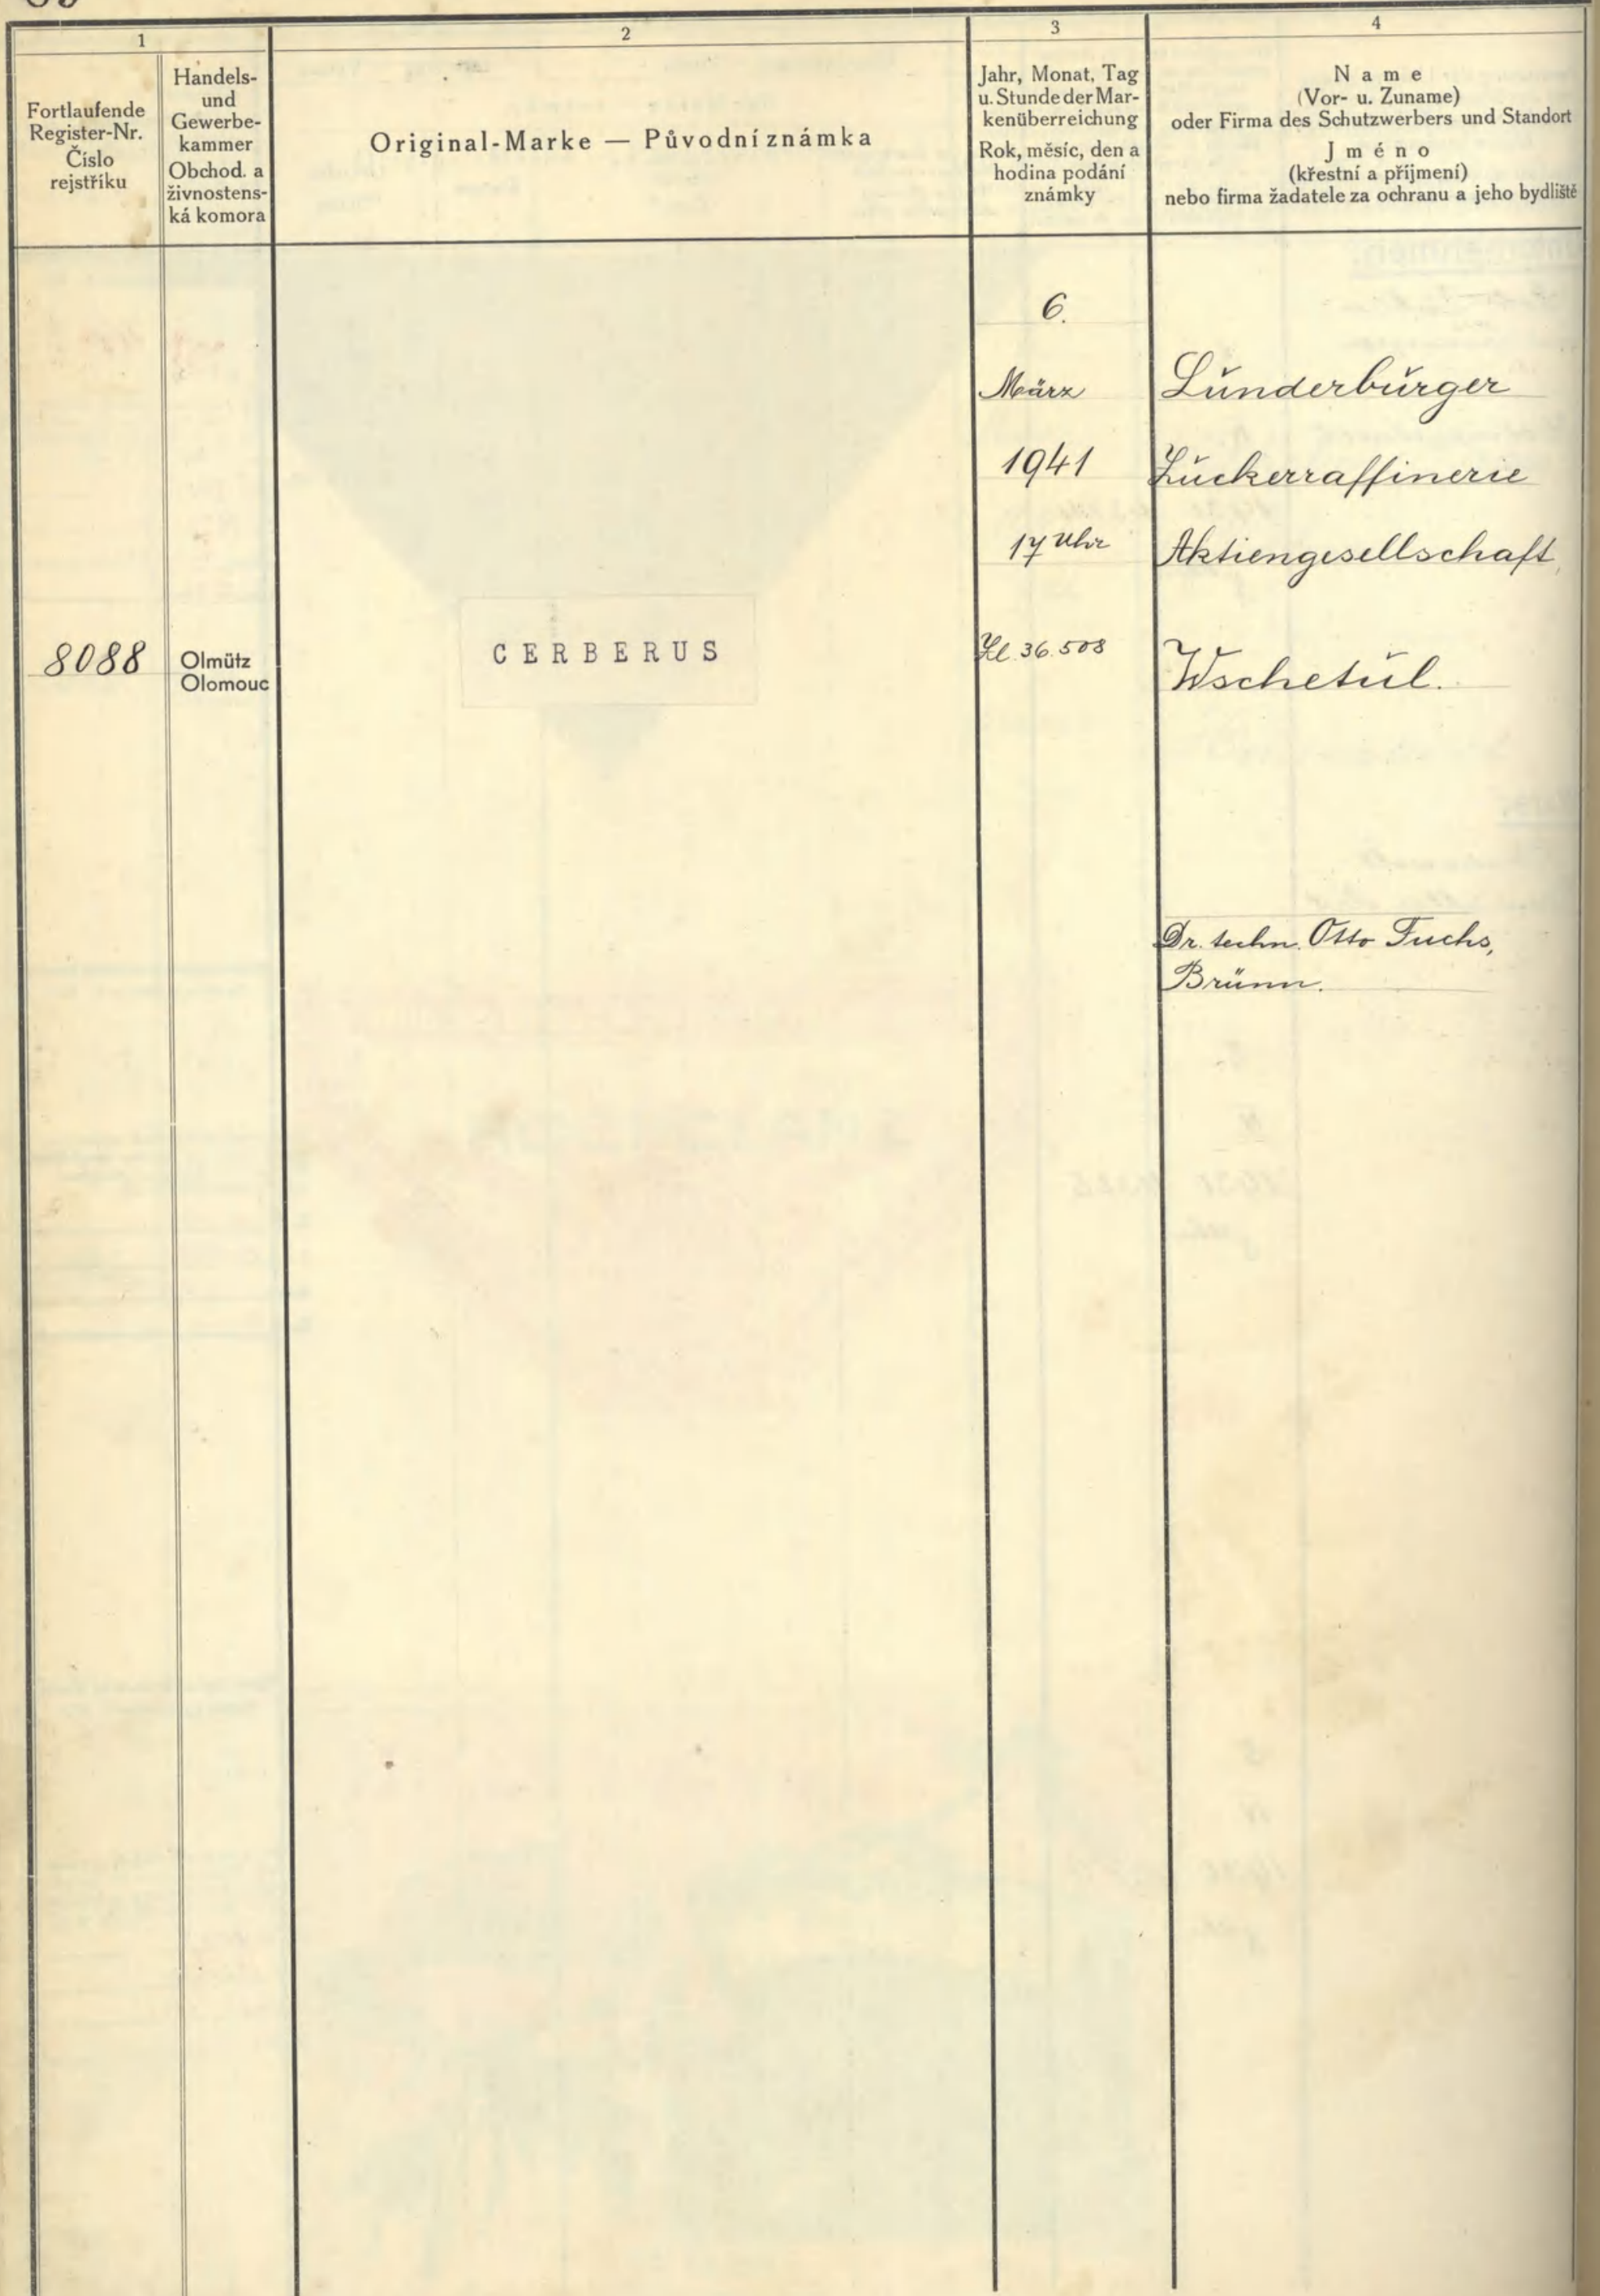 1
2
3
4
Fortlaufende
Register-Nr.
Číslo
rejstříku
Handels-
und
Gewerbe-
kammer
Obchod. a
živnostens-
ká komora
Original-Marke — Původní známka
Jahr, Monat, Tag
u. Stunde der Mar-
kenüberreichung
Rok, měsíc, den a
hodina podání
známky
Name
(Vor- u. Zuname)
oder Firma des Schutzwerbers und Standort
Jméno
(křestní a příjmení)
nebo firma žadatele za ochranu a jeho bydliště
6.
März
1941
17 Uhr
Lunderburger
Zuckerraffinerie
Aktiengesellschaft,
8088
Olmütz
Olomouc
CERBERUS
36.508
Wschetul.
Dr. techn. Otto Fuchs,
Brünn.